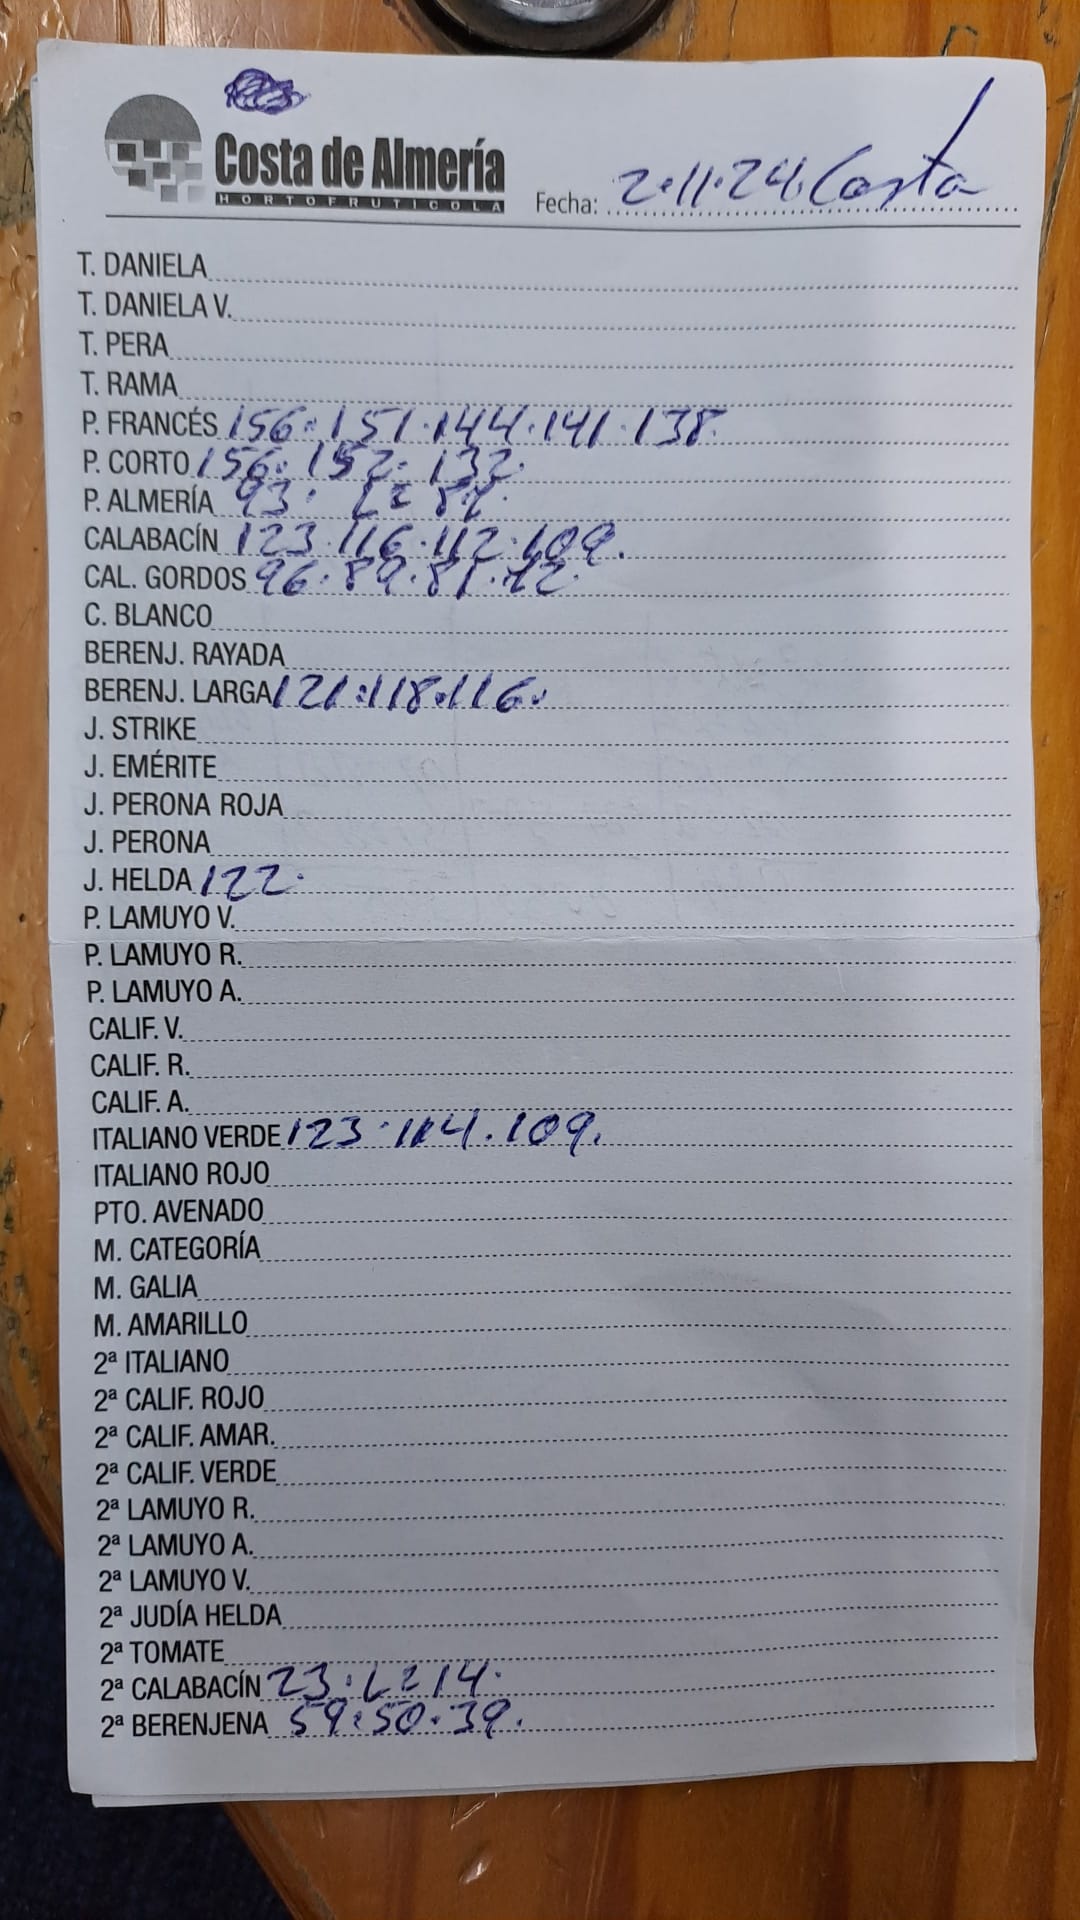 Costa de Almería
HORTOFRUTICOLA
Fecha: 2.11.24. Costa
T. DANIELA
T. DANIELA V.
T. PERA
T. RAMA
P. FRANCÉS 156.151.144.141.138.
P. CORTO 156.152.132.
P. ALMERÍA 93.
CALABACÍN 123.116.112.109.
CAL. GORDOS 96.89.81.
C. BLANCO
BERENJ. RAYADA
BERENJ. LARGA 121.118.116.
J. STRIKE
J. EMÉRITE
J. PERONA ROJA
J. PERONA
J. HELDA 122.
P. LAMUYO V.
P. LAMUYO R.
P. LAMUYO A.
CALIF. V.
CALIF. R.
CALIF. A.
ITALIANO VERDE 123.114.109.
ITALIANO ROJO
PTO. AVENADO
M. CATEGORÍA
M. GALIA
M. AMARILLO
2ª ITALIANO
2ª CALIF. ROJO
2ª CALIF. AMAR.
2ª CALIF. VERDE
2ª LAMUYO R.
2ª LAMUYO A.
2ª LAMUYO V.
2ª JUDÍA HELDA
2ª TOMATE
2ª CALABACÍN 23. 14.
2ª BERENJENA 59.50.39.